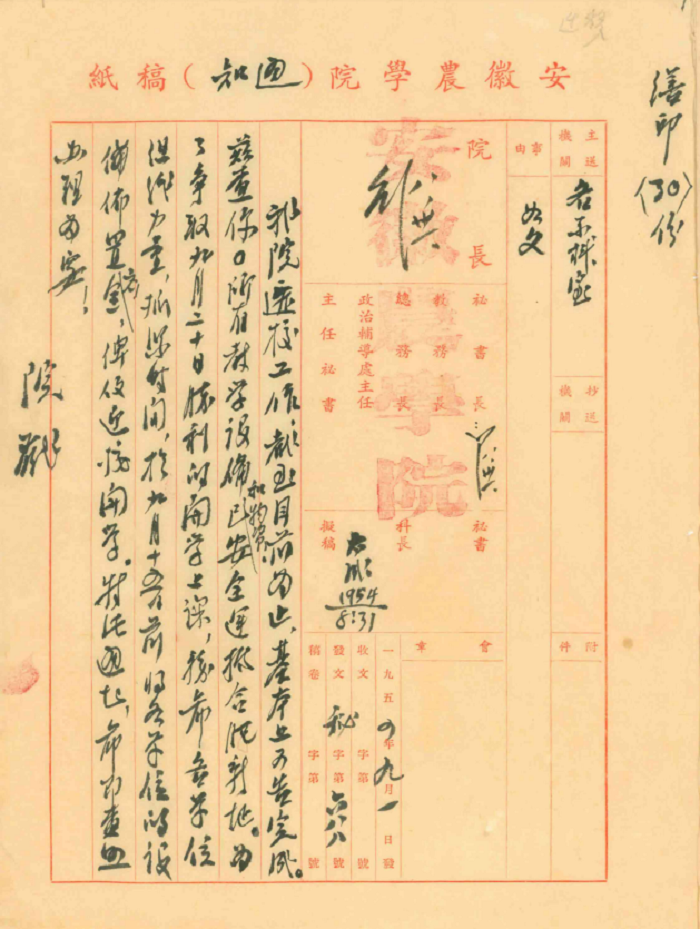 安徽農學院（通知）稿紙
繕印（30）份
主送機關
各系科室
事由
如文
抄送機關
附件
院長
安徽農學院
秘書長
教務長
總務長
政治輔導處主任
主任秘書
秘書
科長
擬稿
1954
8:31
會章
一九五四年九月一日發
收文 字第 號
發文 秘 字第 號
稿卷 字第 號
我院遷校工作，截至目前为止，基本上可告完成。
兹查你口所有教学设备和物資已安全运抵合肥新址。为
了争取九月二十日胜利的開学上課，希各单位
集中力量，抓紧时间，於九月十五日前将各单位的设
備佈置完成，俾便近按開学。特此通知，希即查照
办理为要！
院戳